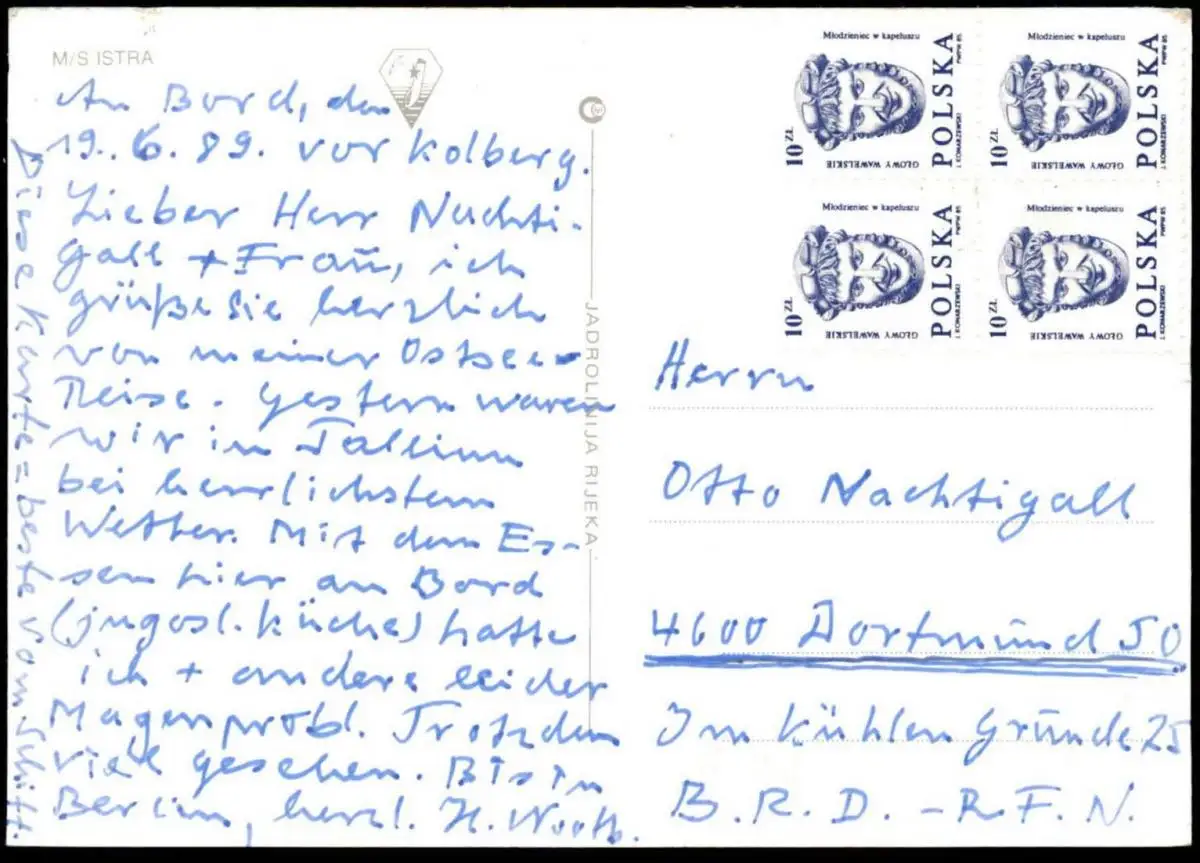 M/S ISTRA
An Bord, den
19. 6. 89. vor Kolberg.
Lieber Herr Nachti-
gall + Frau, ich
grüße sie herzlich
von meiner Ostsee-
Reise. Gestern waren
wir in Tallinn
bei herrlichstem
Wetter. Mit dem Es-
sen hier an Bord
(jugosl. Küche) hatte
ich + andere leider
Magenprobl. Trotzdem
viel gesehen. Bis in
Berlin, herzl. H.
Diese Karte = beste vom Schiff.
JADROLINIJA RIJEKA
Młodzieniec w kapeluszu
10 ZŁ
GŁOWY WAWELSKIE
POLSKA
J. KONARZEWSKI
PWPW 85
Młodzieniec w kapeluszu
10 ZŁ
GŁOWY WAWELSKIE
POLSKA
J. KONARZEWSKI
PWPW 85
Młodzieniec w kapeluszu
10 ZŁ
GŁOWY WAWELSKIE
POLSKA
J. KONARZEWSKI
PWPW 85
Młodzieniec w kapeluszu
10 ZŁ
GŁOWY WAWELSKIE
POLSKA
J. KONARZEWSKI
PWPW 85
Herrn
Otto Nachtigall
4600 Dortmund 50
Im Kühlen Grunde 25
B.R.D. - R.F.N.